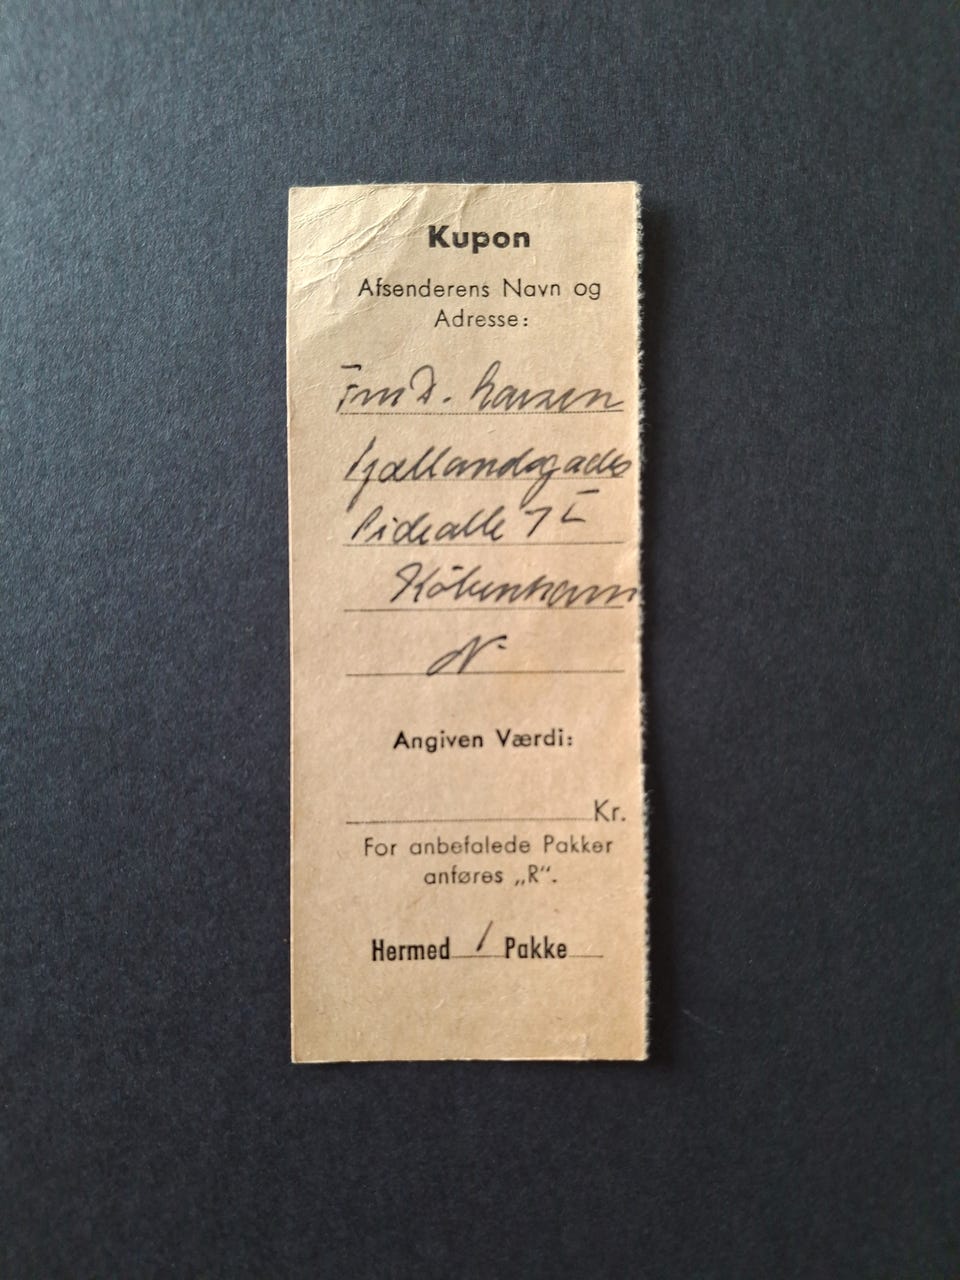 Kupon
Afsenderens Navn og
Adresse:
Larsen
Sjællandsgades
Sidealle 7 I
København
N.
Angiven Værdi:
Kr.
For anbefalede Pakker
anføres „R“.
Hermed 1 Pakke